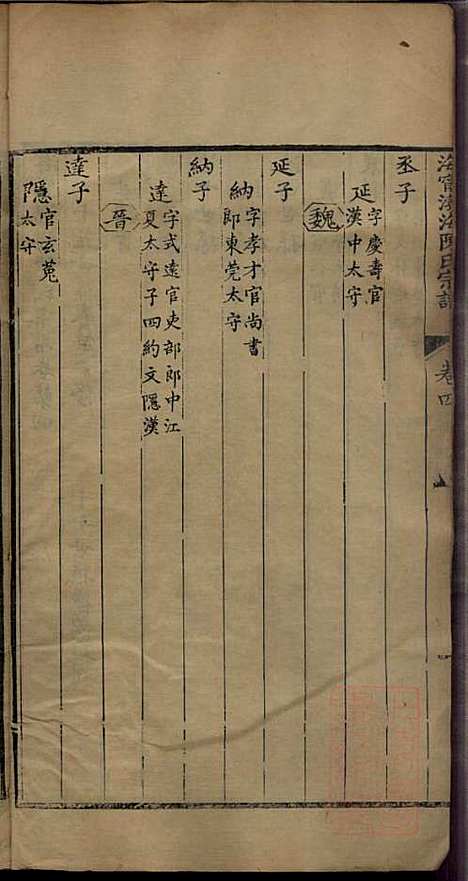 海寧渤海陳氏宗譜
卷四
丞子
延
字慶壽官
漢中太守
魏
延子
納
字孝才官尚書
郎東莞太守
納子
達
字式遠官吏部郎中江
夏太守子四約文隱漢
晉
達子
隱
官玄菟
太守